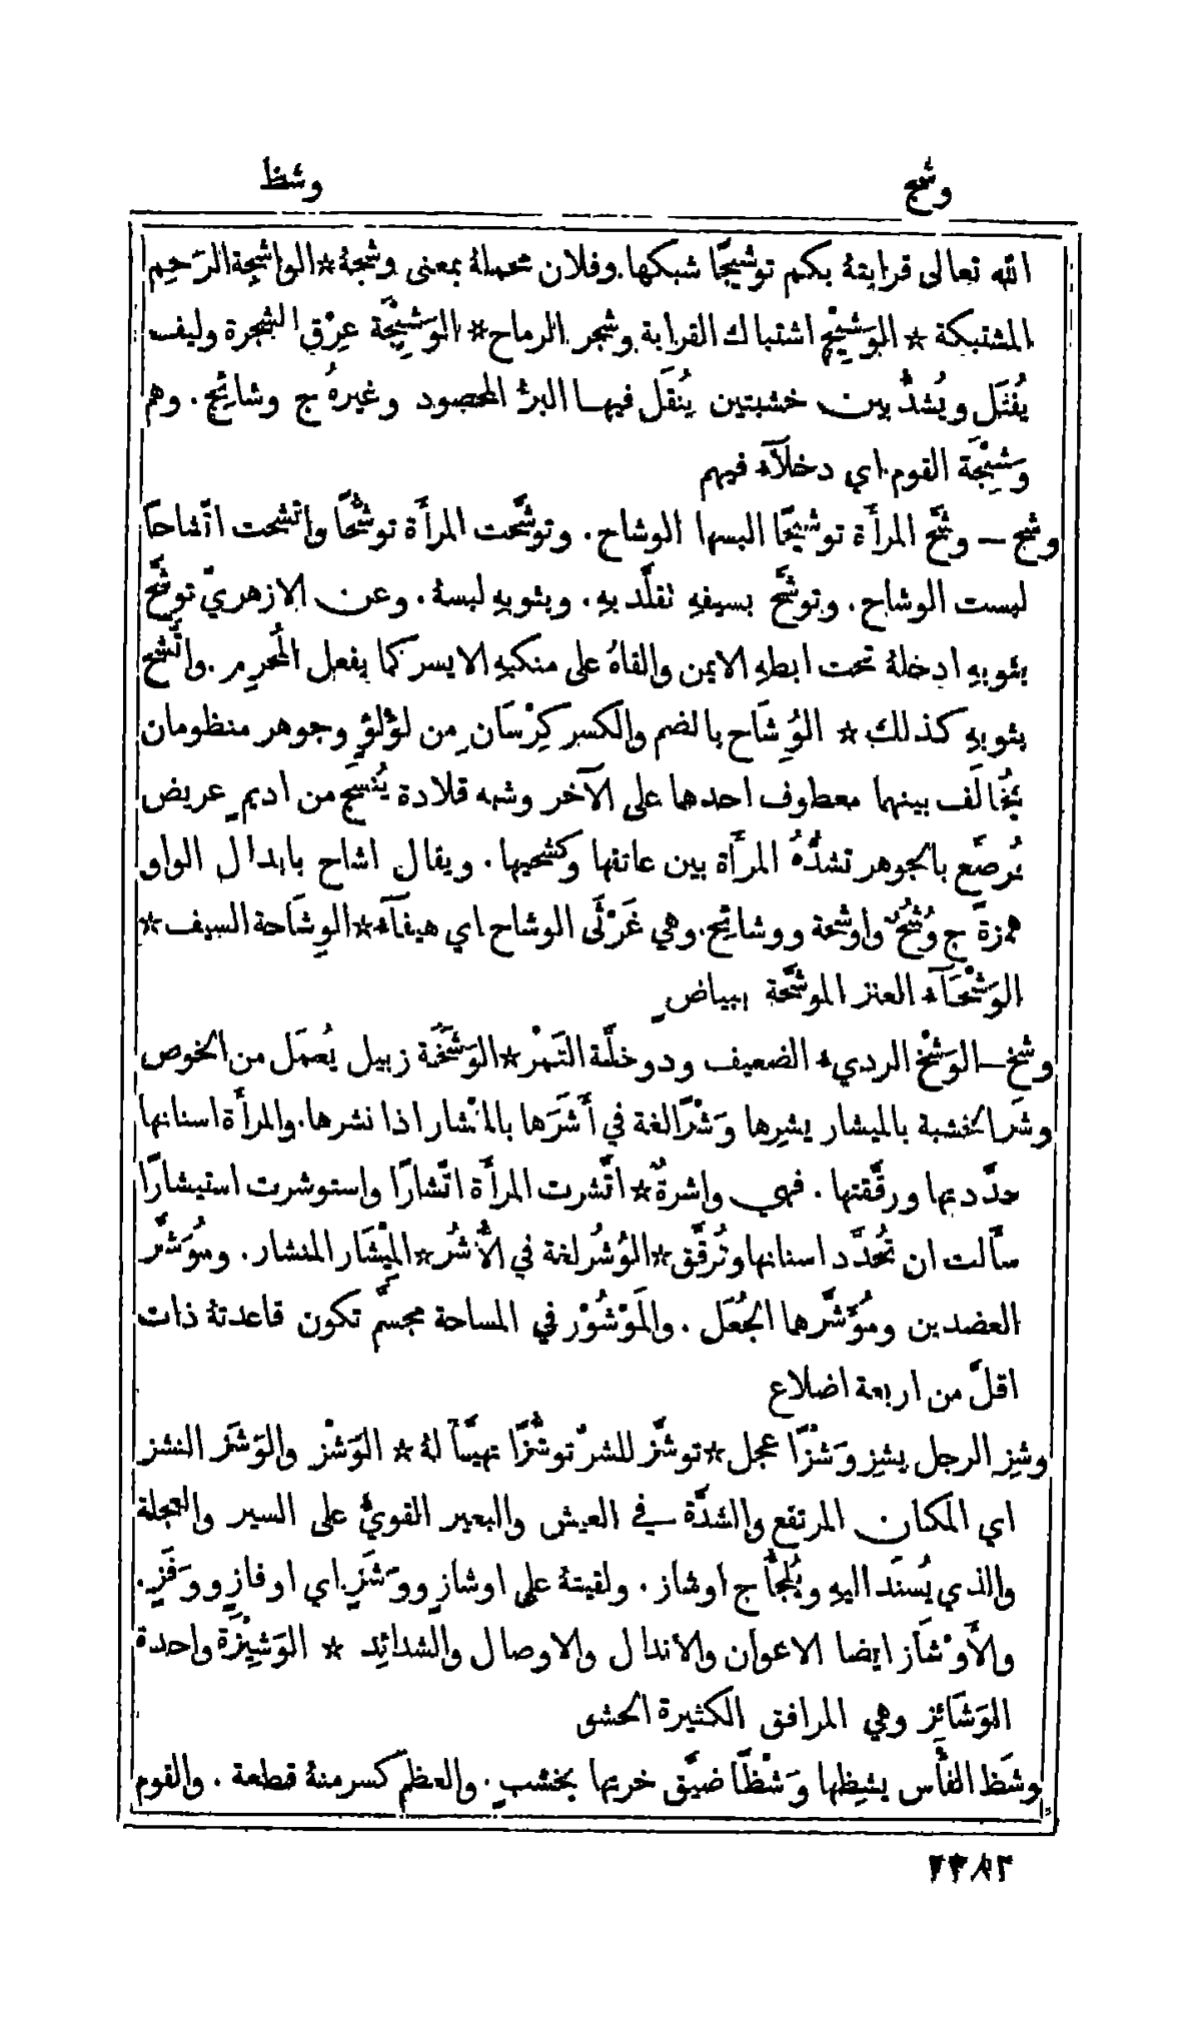 وشج
وشظ
الله تعالى قرابتهُ بكم توشيجًا شبكها. وفلان محملهُ بمعنى وشجهُ * الواشِجة الرَحِم
المشتبكة * الوَشِيْج اشتباك القرابة وشجر الرماح * الوَشِيْجَة عِرْق الشجرة وليف
يُفتَل ويُشدُّ بين خشبتين يُنقَل فيها البرُّ المحصود وغيرهُ ج وشائِج. وهم
وَشِيْجَة القوم اي دخلَآء فيهم
وشح — وشَّح المرأَة توشيحًا البسها الوشاح. وتوشَّحت المرأَة توشُّحًا واتشحت اتّشاحًا
لبست الوشاح. وتوشَّح بسيفهِ تقلَّد بهِ. وبثوبهِ لبسهُ. وعن الازهريّ توشَّح
بثوبهِ ادخلهُ تحت ابطهِ الايمن والقاهُ على منكبهِ الايسر كما يفعل المُحرِم. واتَّشح
بثوبهِ كذلك * الوُِشَاح بالضم والكسر كِرْسَانِ من لوْلوٍ وجوهر منظومان
يُخَالَف بينهما معطوف احدها على الآخر وشبه قلادة يُنسَج من اديمٍ عريض
يُرصَّع بالجوهر تشدُّهُ المرأَة بين عاتقها وكشحيها. ويقال اشاح بابدال الواو
همزة ج وُشُحٌ واوشحة ووشائِح. وهي غَرْثَى الوشاح اي هيفآء * الوِشَاحة السيف *
الوَشْحَآء العنز الموشَّحة ببياضٍ
وشخ — الوَشْخ الرديء الضعيف ودوخلَّة التَمْر * الوَشَخَة زبيل يُعمَل من الخوص
وشَر الخشبة بالميشار يشِرها وَشْرًا لغة في أَشَرَها بالمئشار اذا نشرها. والمرأَة اسنانها
حدَّدتها ورقَّقتها. فهي واشرةٌ * اتَّشرت المرأَة اتّشارًا واستوشرت استيشارًا
سأَلت ان تُحدَّد اسنانها وتُرقَّق * الوُشُر لغة في الأُشُر * المِيْشَار المنشار. ومُوَشَّر
العضدين ومُؤَشَّرها الجُعَل. والمَوْشُوْر في المساحة مجسَّم تكون قاعدتهُ ذات
اقلَّ من اربعة اضلاع
وشِز الرجل يشِز وَشْزًا عجل * توشَّز للشرّ توشُّزًا تهيَّأَ لهُ * الوَشْز والوَشَز النشز
اي المكان المرتفع والشدَّة في العيش والبعير القويُّ على السير والعجلة
والذي يُسنَد اليهِ ويُلجَأُ ج اوشاز. ولقيتهُ على اوشازٍ ووَشَزٍ اي اوفازٍ ووَفَزٍ.
والأَوْشَاز ايضا الاعوان والانذال والاوصال والشدائِد * الوَشِيْزَة واحدة
الوَشَائز وهي المرافق الكثيرة الحشو
وشَظ الفأس يشِظها وَشْظًا ضيَّق خرتها بخشبٍ. والعظم كسر منهُ قطعة. والقوم
٢٣٨٢